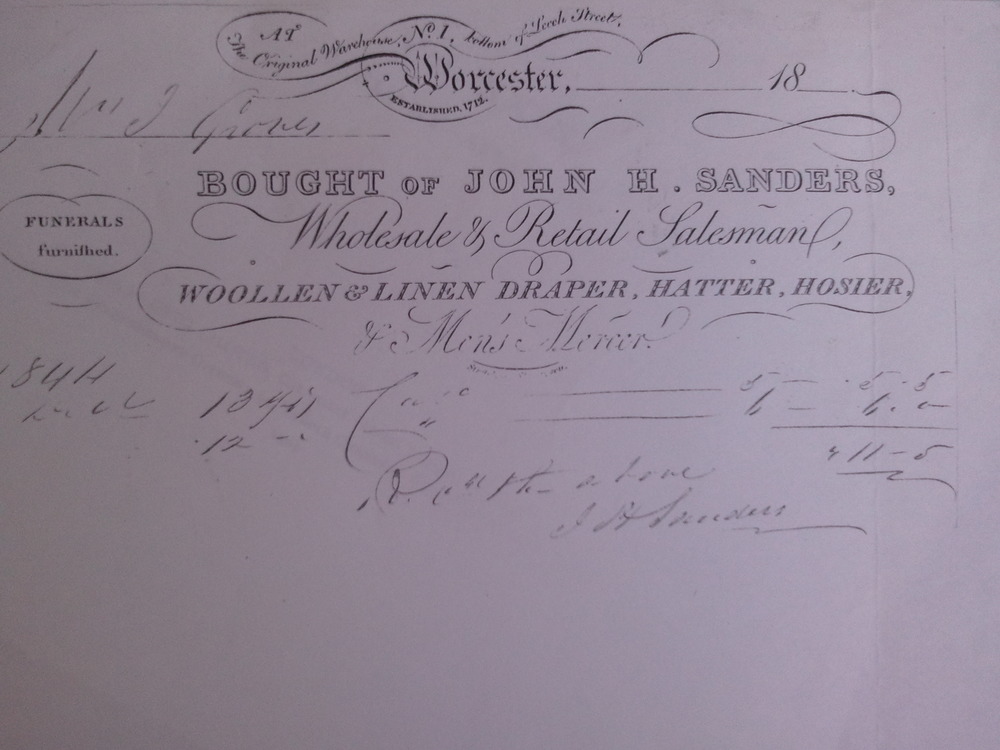 AT
The Original Warehouse, No. 1, bottom of Leech Street,
Worcester, 18
ESTABLISHED, 1712.
Mr J Groves
BOUGHT OF JOHN H. SANDERS,
FUNERALS
furnished.
Wholesale & Retail Salesman,
WOOLLEN & LINEN DRAPER, HATTER, HOSIER,
& Men's Mercer.
1844
5 — 5.5
12 — " 6 — 6.0
11-5
above
J H Sanders